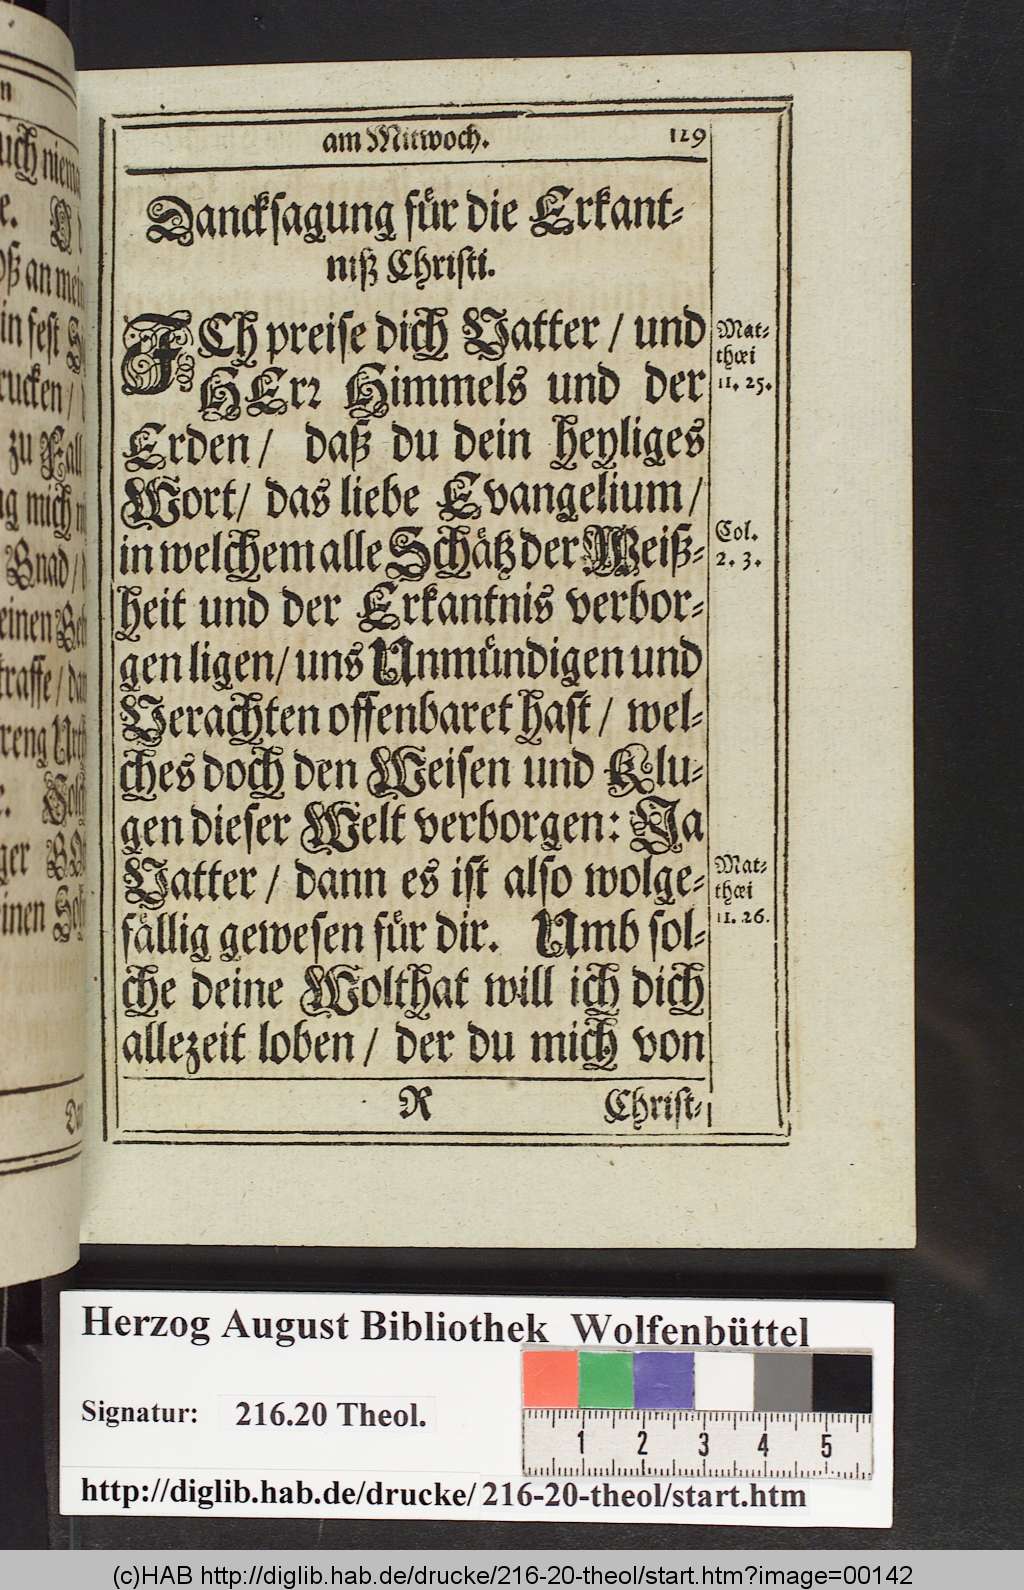 am Mitwoch. 129
Dancksagung für die Erkant-
niß Christi.
ICh preise dich Vatter / und
HErr Himmels und der
Erden / daß du dein heyliges
Wort / das liebe Evangelium /
in welchem alle Schätz der Weiß-
heit und der Erkantnis verbor-
gen ligen / uns Unmündigen und
Verachten offenbaret hast / wel-
ches doch den Weisen und Klu-
gen dieser Welt verborgen: Ja
Vatter / dann es ist also wolge-
fällig gewesen für dir. Umb sol-
che deine Wolthat will ich dich
allezeit loben / der du mich von
R Christ-
Mat-
thæi
11. 25.
Col.
2. 3.
Mat-
thæi
11. 26.
Herzog August Bibliothek Wolfenbüttel
Signatur: 216.20 Theol.
1 2 3 4 5
http://diglib.hab.de/drucke/216-20-theol/start.htm
(c)HAB http://diglib.hab.de/drucke/216-20-theol/start.htm?image=00142